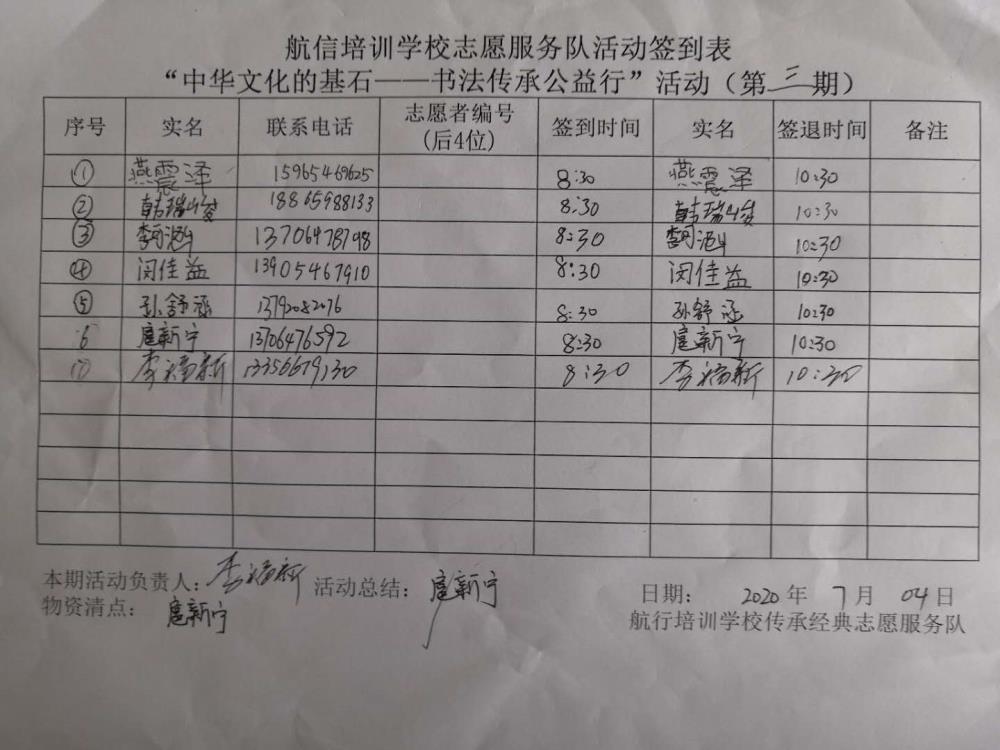 航信培训学校志愿服务队活动签到表
“中华文化的基石——书法传承公益行”活动（第三期）
序号 实名 联系电话 志愿者编号(后4位) 签到时间 实名 签退时间 备注
① 燕震泽 15965469625 8:30 燕震泽 10:30
② 韩瑞峻 18865988133 8:30 韩瑞峻 10:30
③ 13706478798 8:30 10:30
④ 闵佳益 13905467910 8:30 闵佳益 10:30
⑤ 孙舒涵 13792082076 8:30 孙舒涵 10:30
6 扈新宁 13706476592 8:30 扈新宁 10:30
⑦ 李福新 13356679130 8:30 李福新 10:30
本期活动负责人：李福新 活动总结：扈新宁 日期： 2020年 7月 04日
物资清点：扈新宁 航行培训学校传承经典志愿服务队